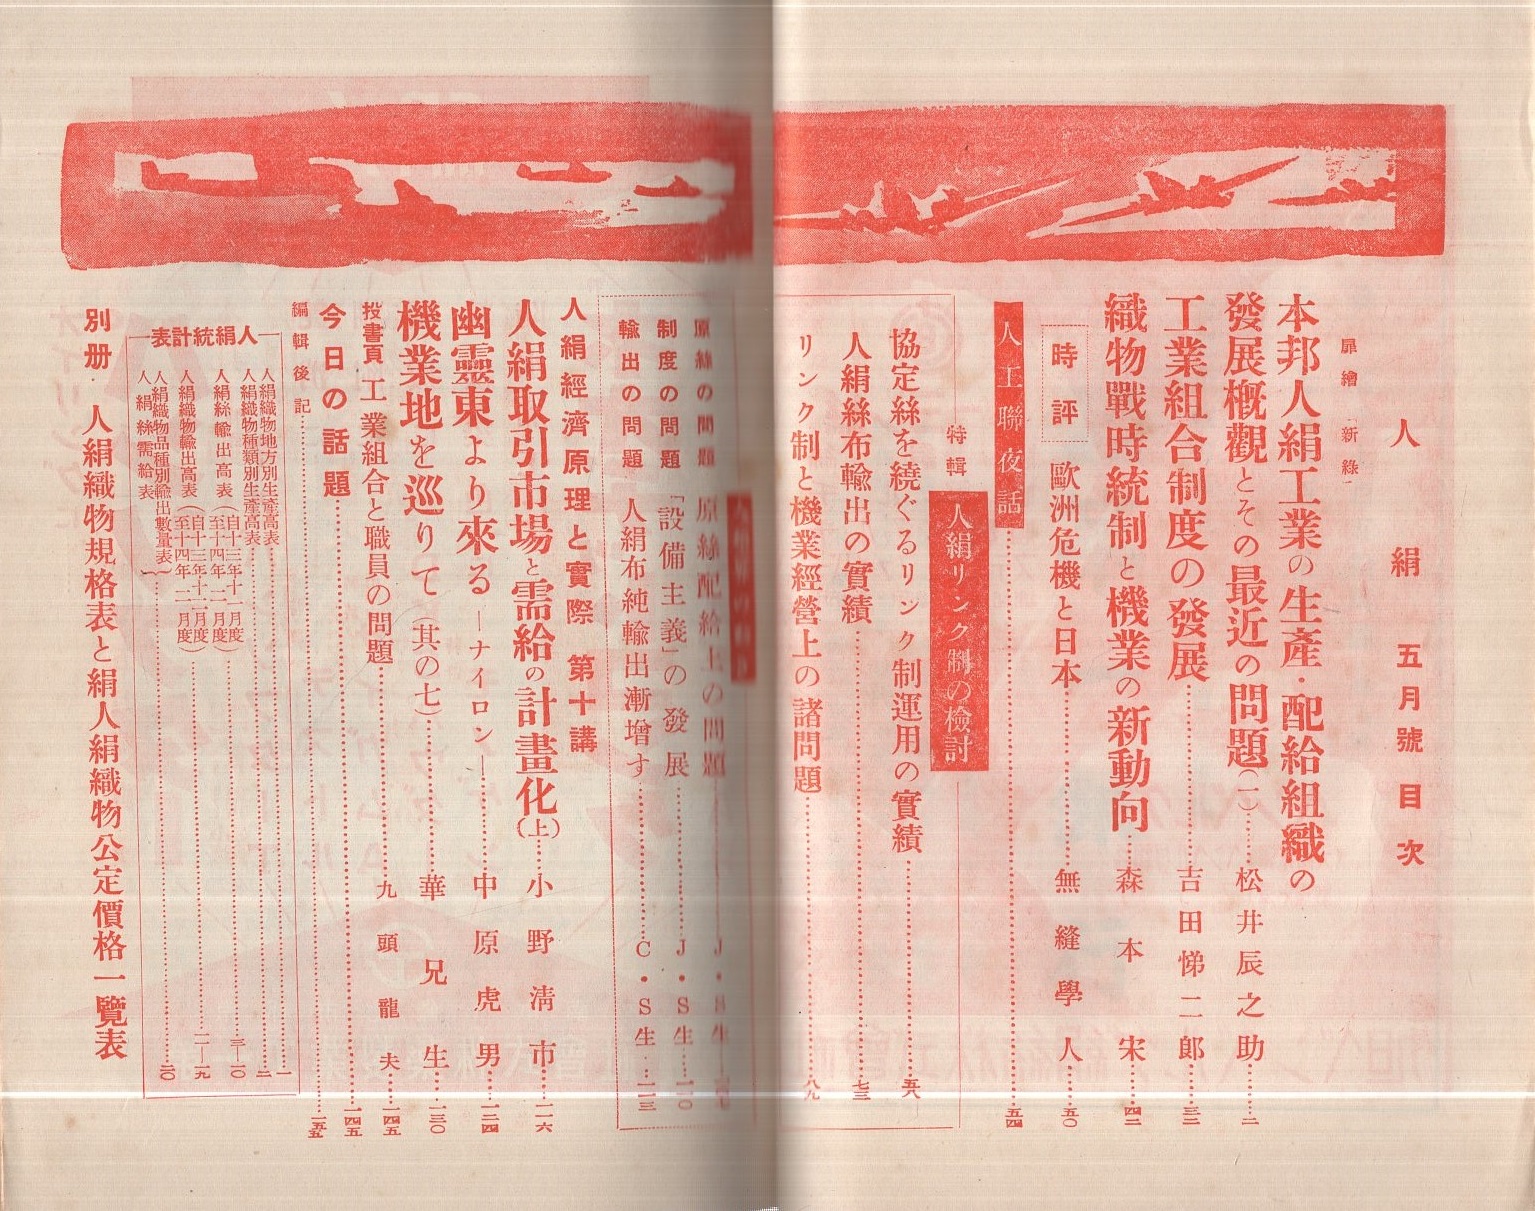 人絹 五月號目次
扉繪「新綠」
本邦人絹工業の生產・配給組織の
發展槪觀とその最近の問題(一)……松井辰之助……二
工業組合制度の發展……吉田悌二郞……三二
織物戰時統制と機業の新動向……森本宋……四二
時評 歐洲危機と日本……無縫學人……五〇
人工聯夜話……五四
特輯 人絹リンク制の檢討
協定絲を繞ぐるリンク制運用の實績……五八
人絹絲布輸出の實績……七三
リンク制と機業經營上の諸問題……八九
原絲の問題 原絲配給上の問題……J・S生
制度の問題 「設備主義」の發展……J・S生……一一〇
輸出の問題 人絹布純輸出漸增す……C・S生……一一三
人絹經濟原理と實際 第十講
人絹取引市場と需給の計畫化(上)……小野淸市……一一六
幽靈東より來る―ナイロン―……中原虎男……一二四
機業地を巡りて(其の七)……華兄生……一三〇
投書員 工業組合と職員の問題……九頭龍夫……一四五
今日の話題……一四五
編輯後記……一五五
人絹統計表
人絹織物地方別生產高表……一
人絹織物種類別生產高表……二
人絹絲輸出高表(自十三年十一月度至十四年二月度)……三―一〇
人絹織物輸出高表(自十三年十二月度至十四年二月度)……一一―一九
人絹織物品種別輸出數量表
人絹絲需給表……二〇
別册・人絹織物規格表と絹人絹織物公定價格一覽表